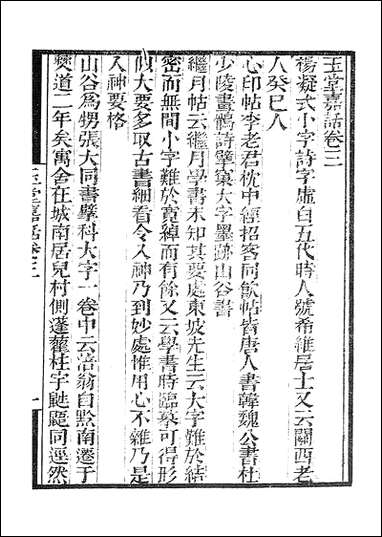 玉堂嘉話卷三
楊凝式小字詩字虛白五代時人號希維居士又云關西老
人癸巳人
心印帖李老君枕中經招客同飲帖皆唐人書韓魏公書杜
少陵畫鶻詩擘窠大字墨跡山谷書
繼月帖云繼月學書未知其要處東坡先生云大字難於結
密而無間小字難於寬綽而有餘又云學書時臨摹可得形
似大要多取古書細看令入神乃到妙處惟用心不雜乃是
入神要格
山谷爲甥張大同書擘科大字一卷中云涪翁自黔南遷于
僰道二年矣寓舍在城南居兒村側蓬藋柱宇鼪鼯同逕然
玉堂嘉話卷三
一